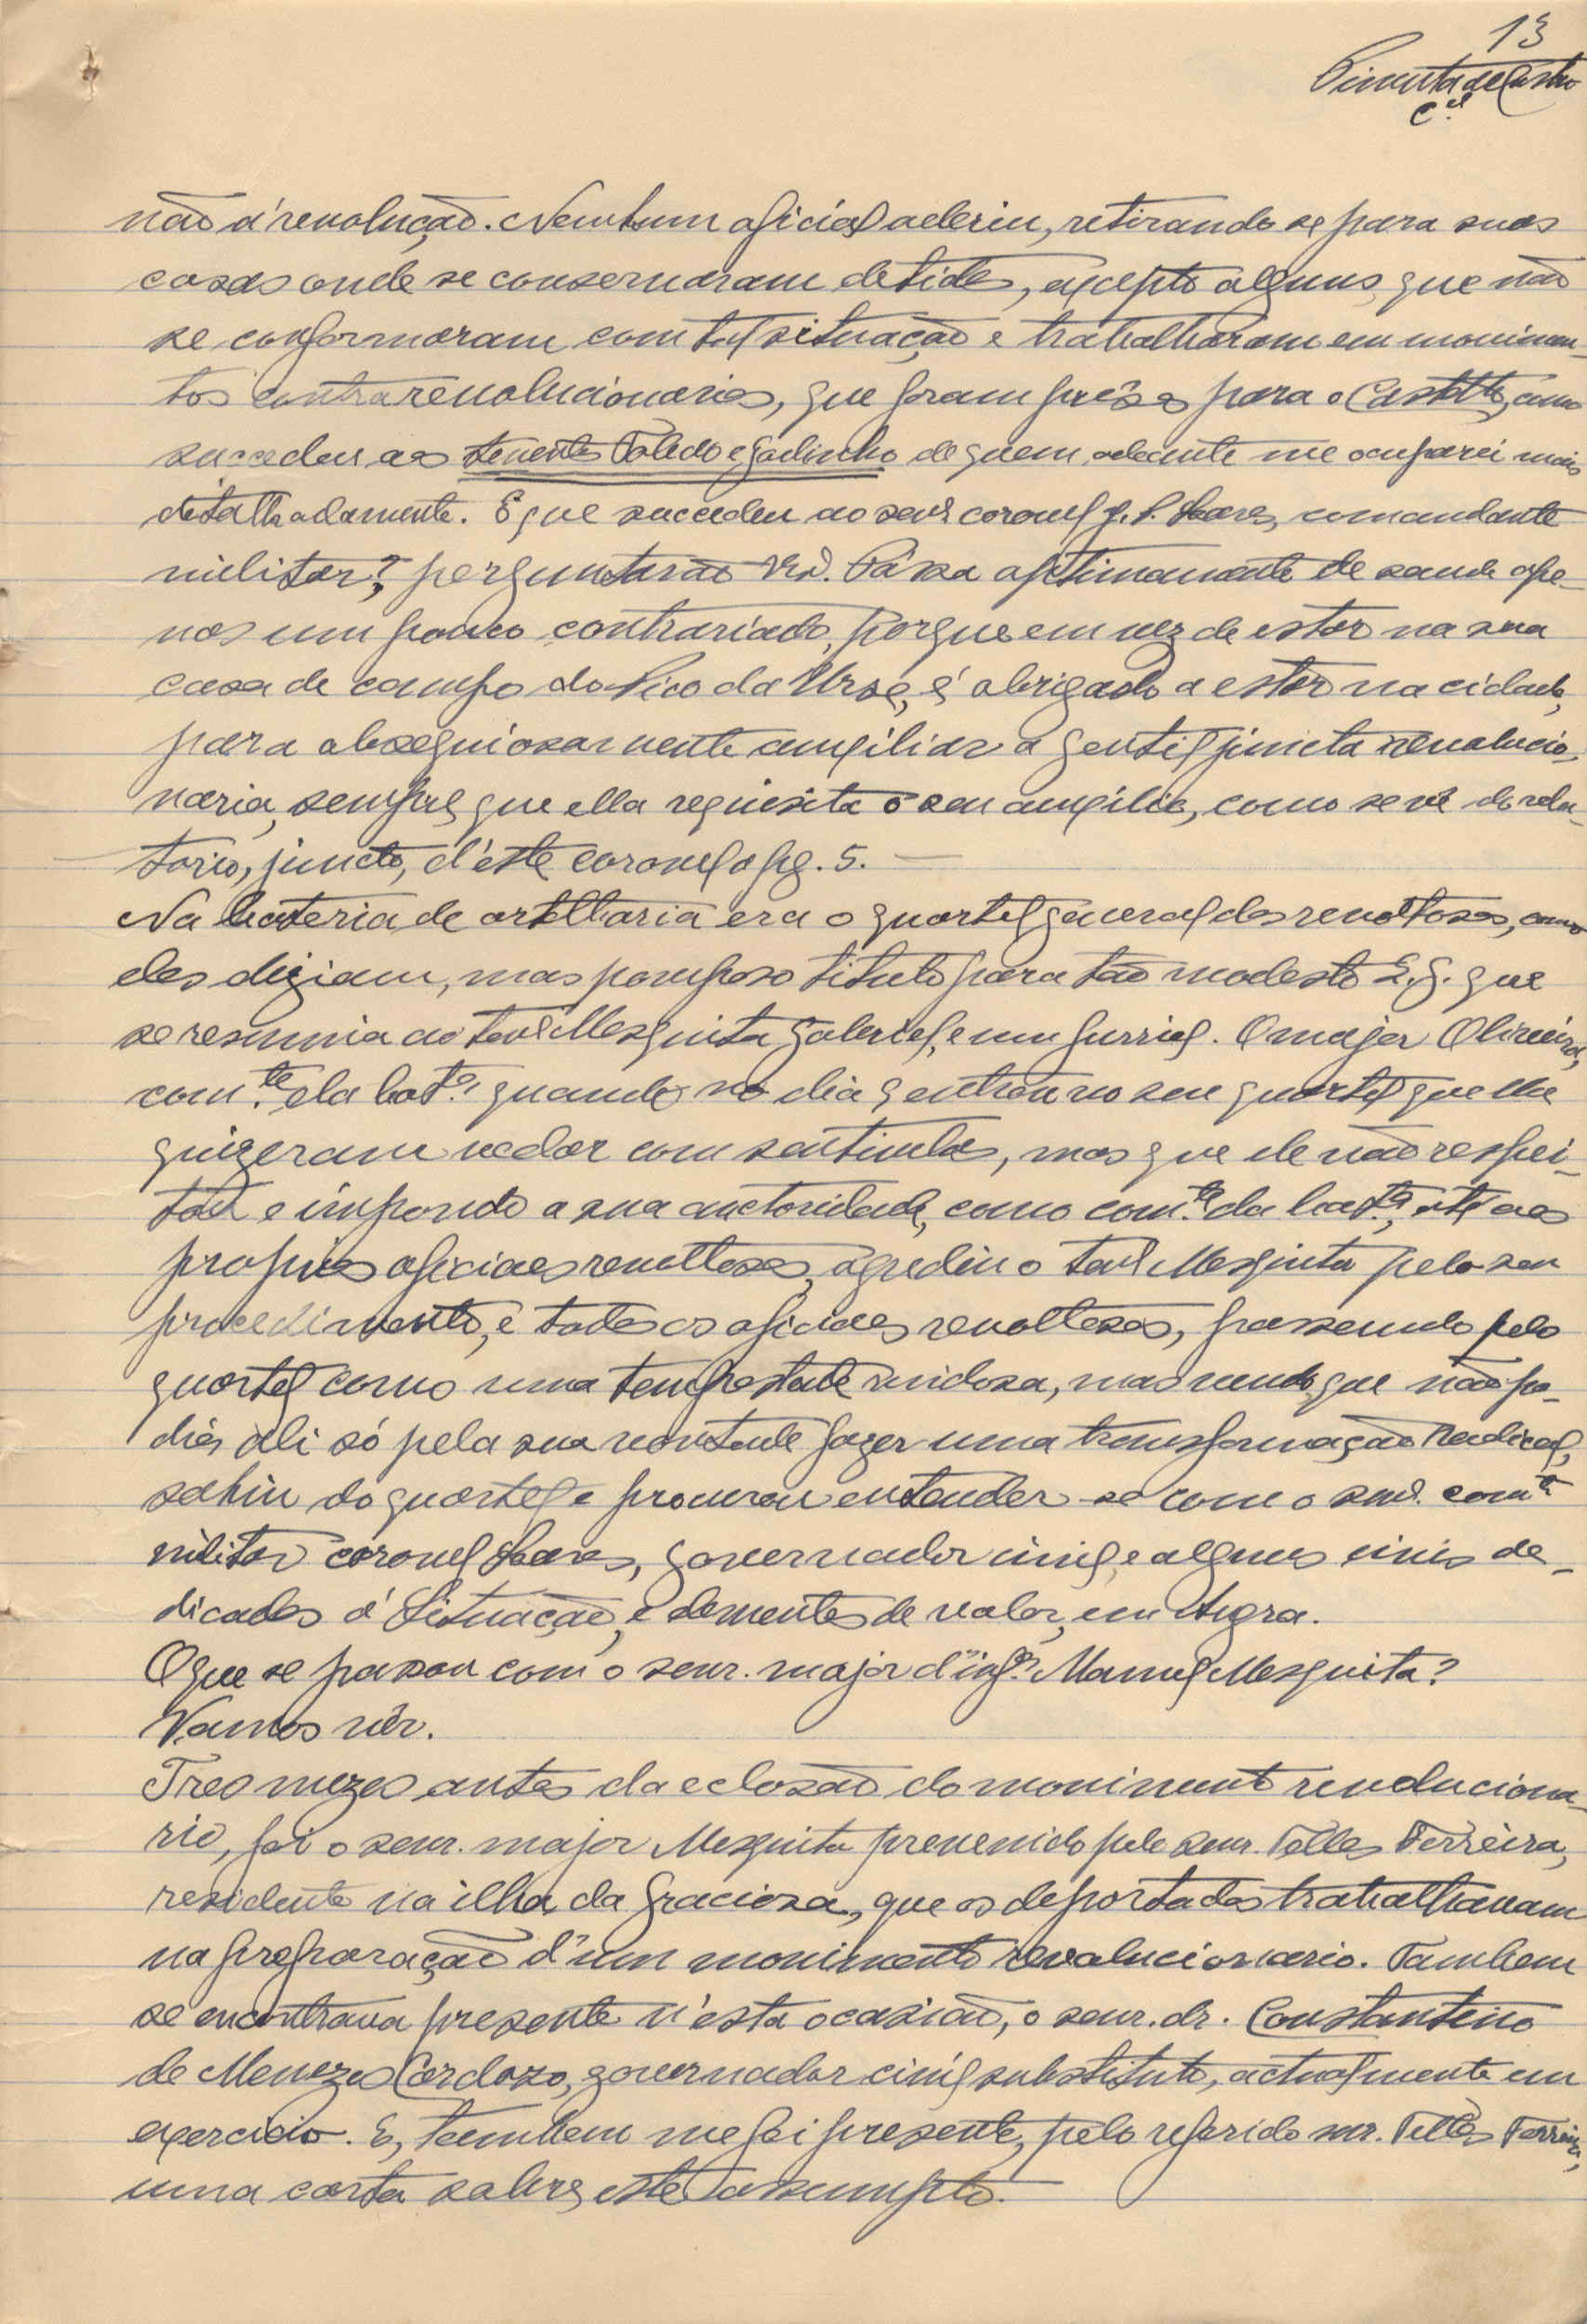 13
Pimenta de Castro
C.el
não á revolução. Nenhum oficial aderiu, retirando se para suas
casas onde se conservaram detidos, excepto alguns que não
se conformaram com tal situação e trabalharam em movimen-
tos contrarevolucionarios, que foram prêsos para o Castello, como
succedeu aos tenentes Toledo e Godinho de quem adeante me ocuparei mais
detalhadamente. E que succedeu ao senr coronel Soares, comandante
militar?, perguntarão V.as. Pássa optimamente de saude ape-
nas um pouco contrariado, porque em vez de estar na sua
casa de campo do Pico da Urze, é obrigado a estar na cidade,
para obsequiosamente auxiliar a gentil juncta revolucio-
naria, sempre que ella requisita o seu auxilio, como se vê do rela-
torio, juncto, d'este coronel a pg. 5.
Na bateria de artelharia era o quartel general dos revoltosos, como
eles diziam, mas pomposo titulo para tão modesto Q.G. que
se resumia ao tent Mesquita, Gabriel, e um furriel. O major Oliveira,
com.te da bat.a quando no dia 9 entrou no seu quartel que lhe
quizeram vedar com sentinelas, mas que ele não respei-
tou e impondo a sua auctoridade, como com.te da bat.a, até aos
proprios oficiaes revoltosos, agrediu o tent Mesquita pelo seu
procedimento, e todos os oficiaes revoltosos, passando pelo
quartel como uma tempestade ruidosa, mas vendo que não po-
dia ali só pela sua vontade fazer uma transformação radical,
sahiu do quartel e procurou entender-se com o snr. com.te
militar coronel Soares, governador civil e alguns civis de-
dicados á Situação, e elementos de valor, em Angra.
O que se passou com o senr. major d'inf.a Manuel Mesquita?
Vamos vêr.
Tres mezes antes da eclosão do movimento revoluciona-
rio, foi o senr. major Mesquita prevenido pelo senr. Telles Ferreira,
residente na ilha da Graciosa, que os deportados trabalhavam
na preparação d'um movimento revolucionario. Tambem
se encontrava presente n'esta ocasião, o senr. dr. Constantino
de Menezes Cardozo, governador civil substituto, actualmente em
exercicio. E, tambem me foi presente, pelo referido snr. Telles Ferreira,
uma carta sobre este assumpto.